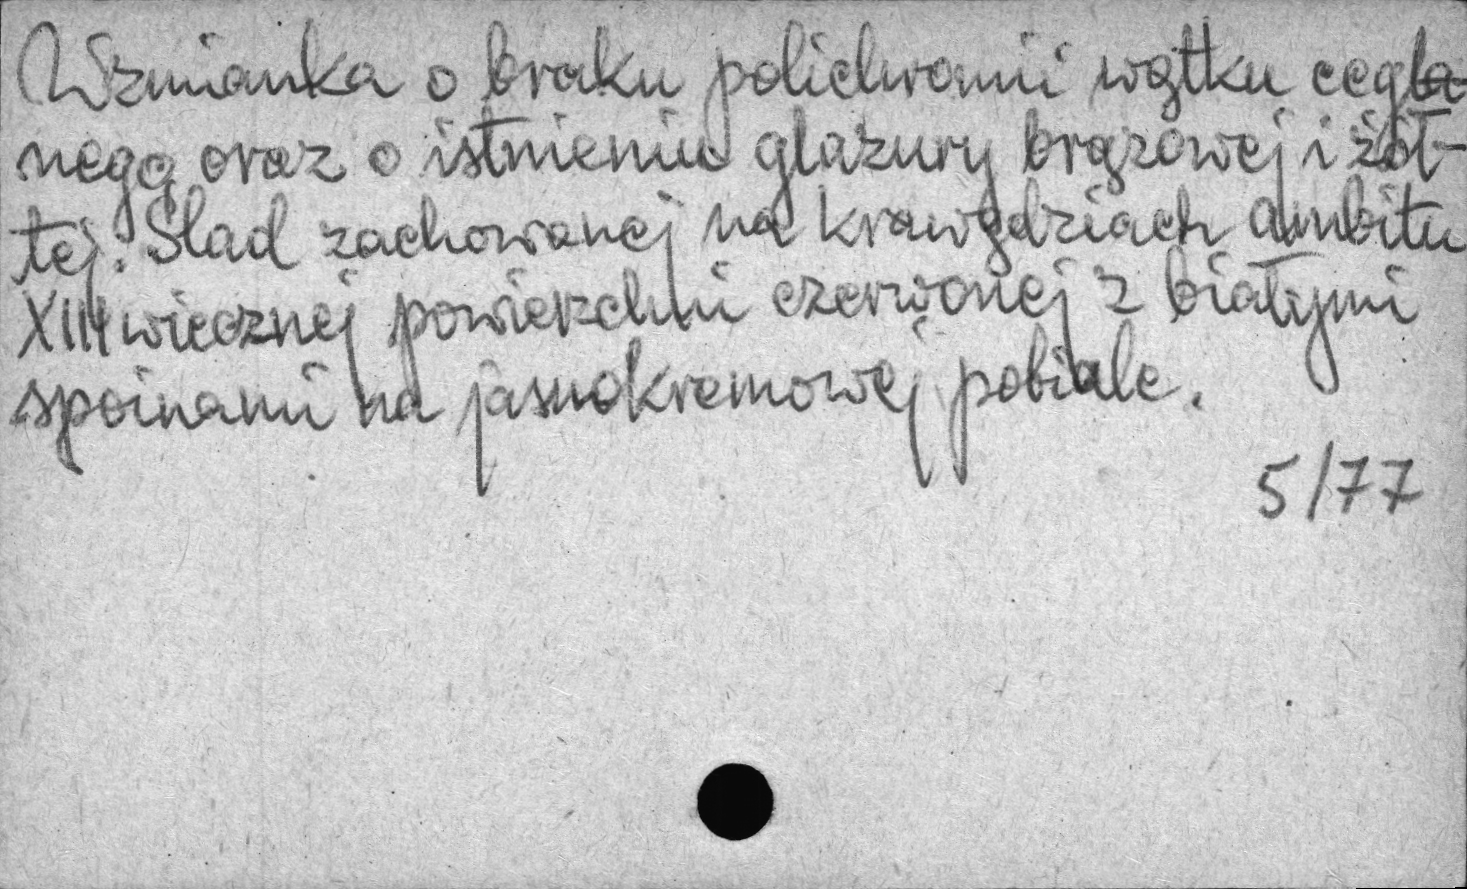 Wzmianka o braku polichromii wątku cegla-
nego oraz o istnieniu glazury brązowej i żół-
tej. Ślad zachowanej na krawędziach ambitu
XIII wiecznej powierzchni czerwonej z białymi
spoinami na jasnokremowej pobiale.
5/77